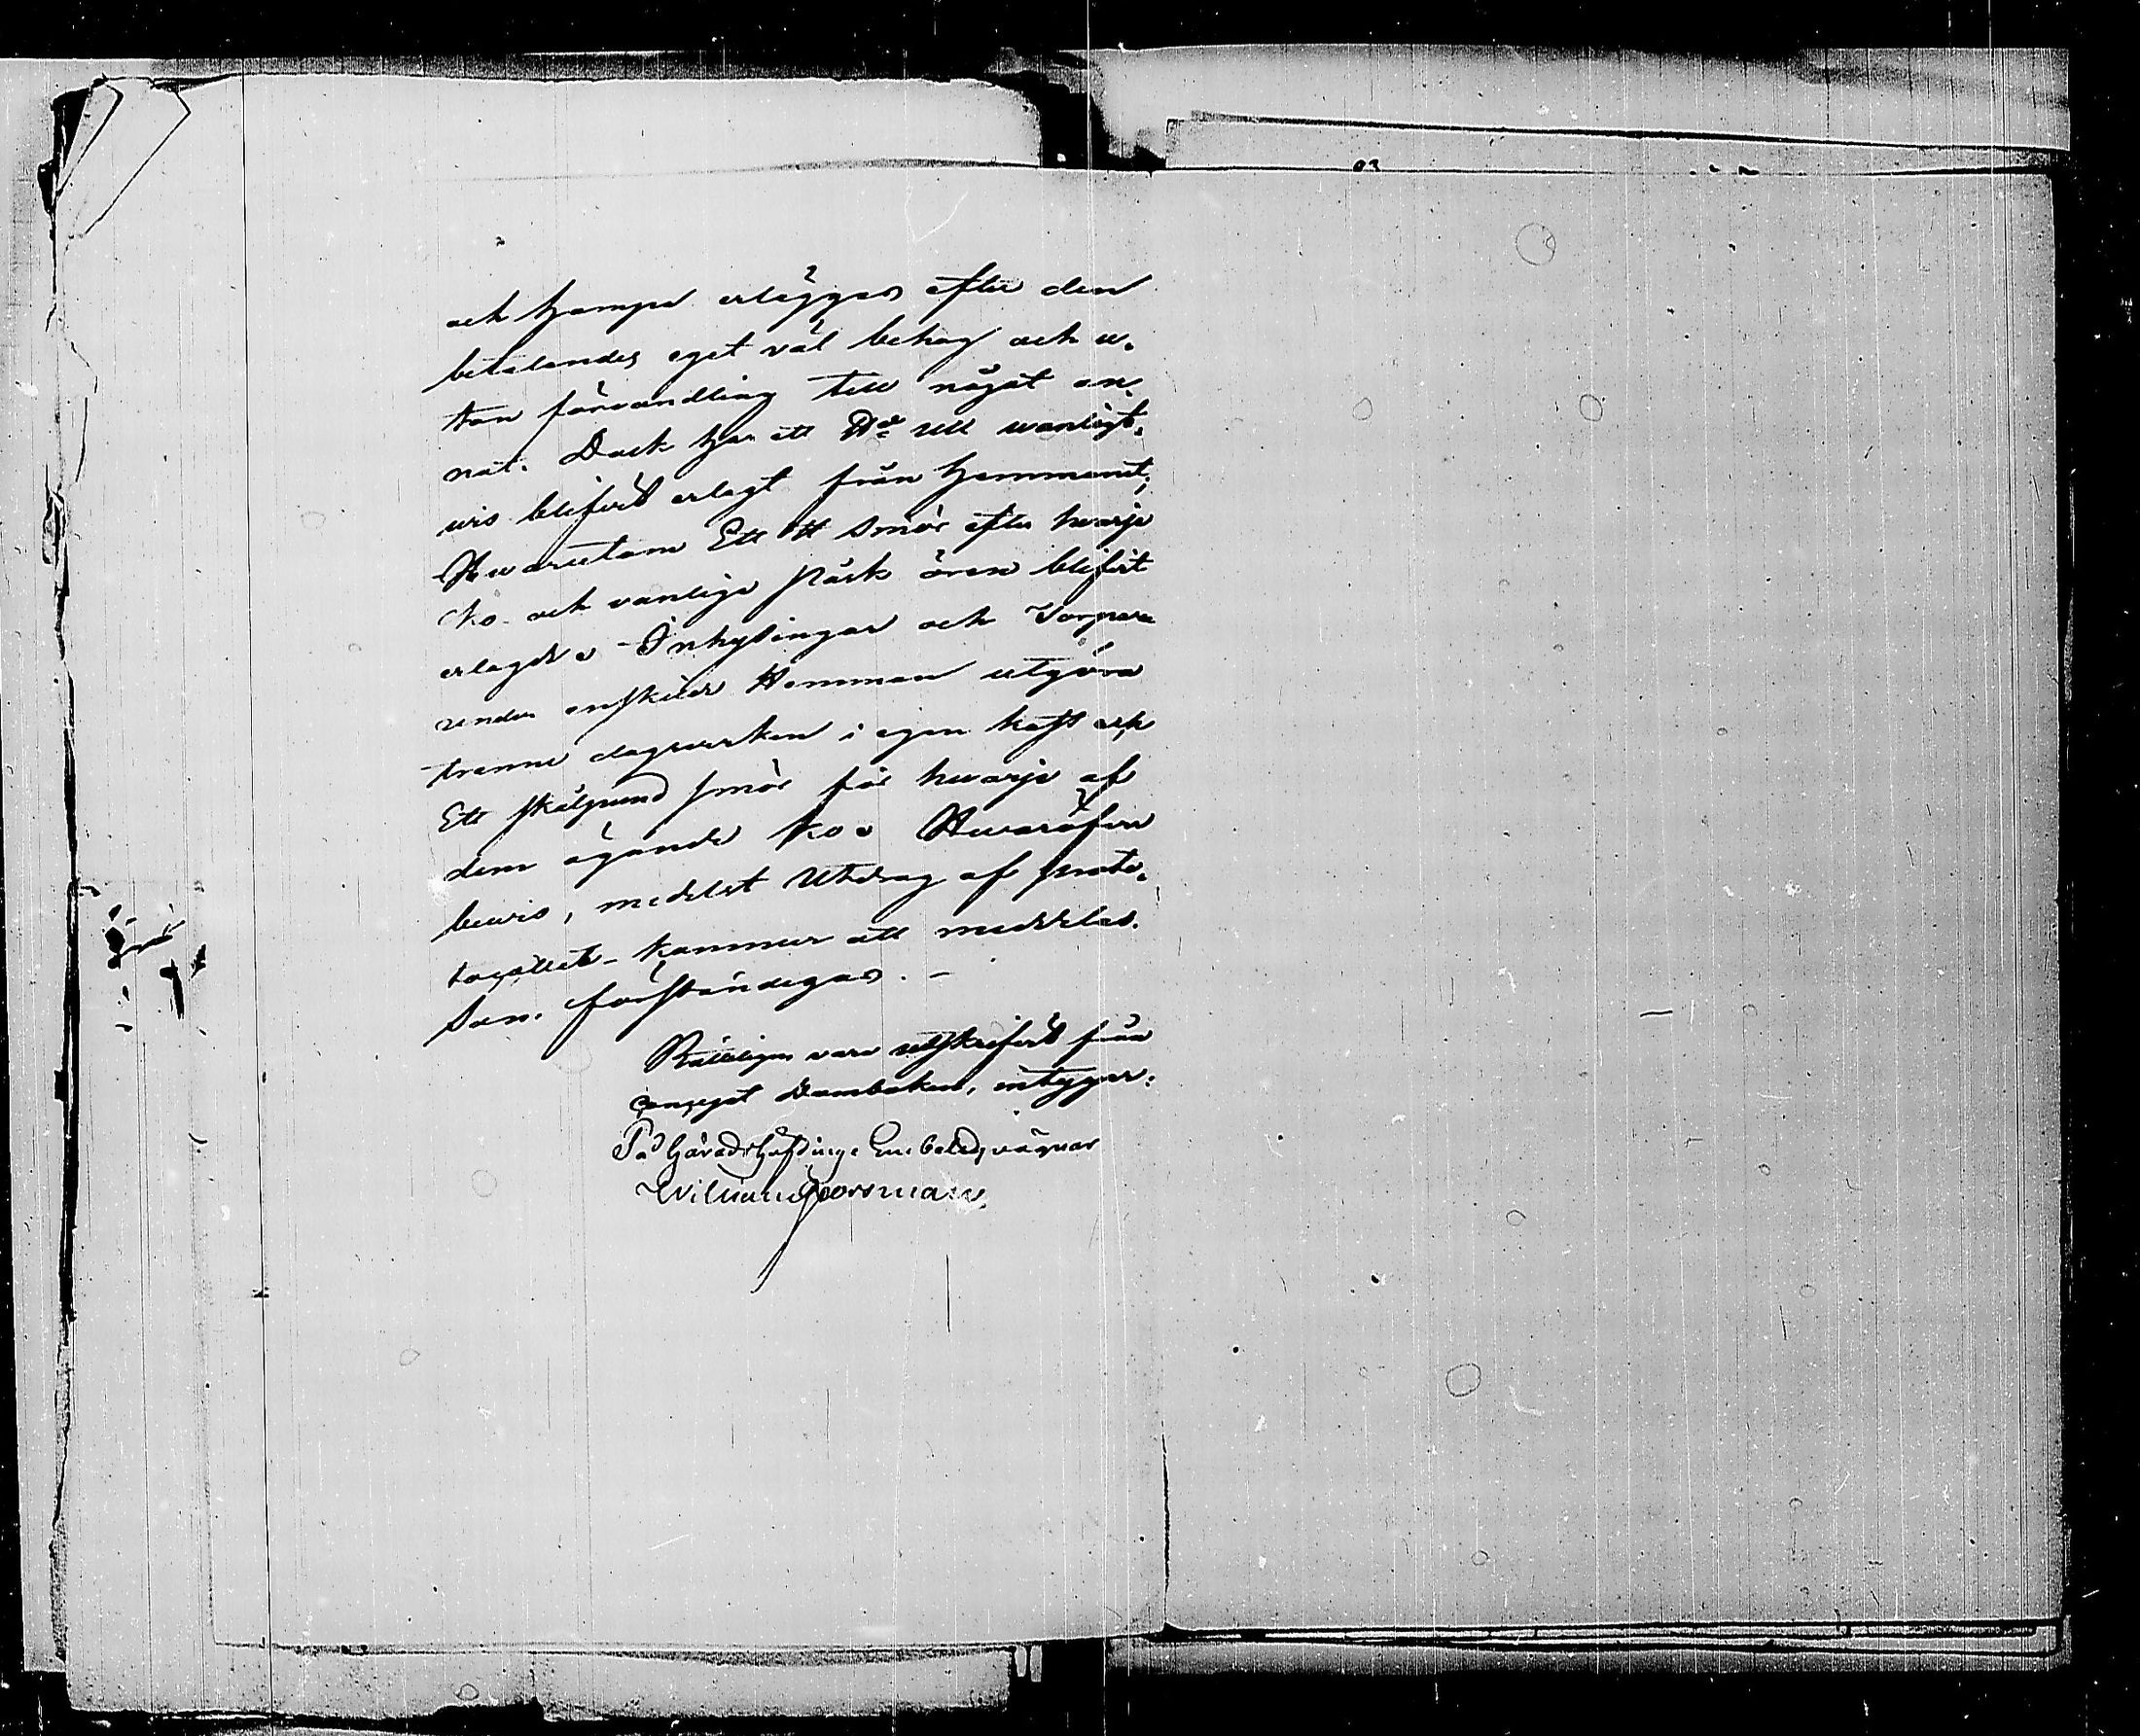 och hampa erlägges efter den
betalandes eget väl behag och u-
tan förvandling till något an-
nat. Dock har ett ull wanligt-
wis blifvit erlagt från hemmanet;
Hvarutom Ett ℔ smör efter hvarje
Ko och vanlige påsk ören blifvit
erlagde. Inhysingar och Torpare
under enskilde Hemman utgöra
trenne dagsverken i egen kost och
Ett skålpund smör för hwarje af
dem ägande Ko. Hvaröfver
bewis, medelst Utdrag af proto-
collet kommer att meddelas.
Som förständigas. —
Rätteligen vara utskrifvit från
conseptDomboken, intygar:
På Häradshöfdinge Embetets vägnar
William Forsman